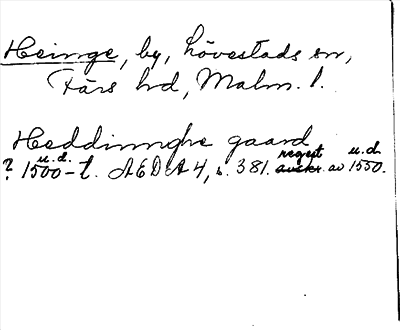 Heinge, by, Lövestads sn,
Färs hd, Malm. l.
Heddinnghe gaard
u.d. regest u.d.
? 1500-t. AEDA 4, s. 381. avskr. av 1550.